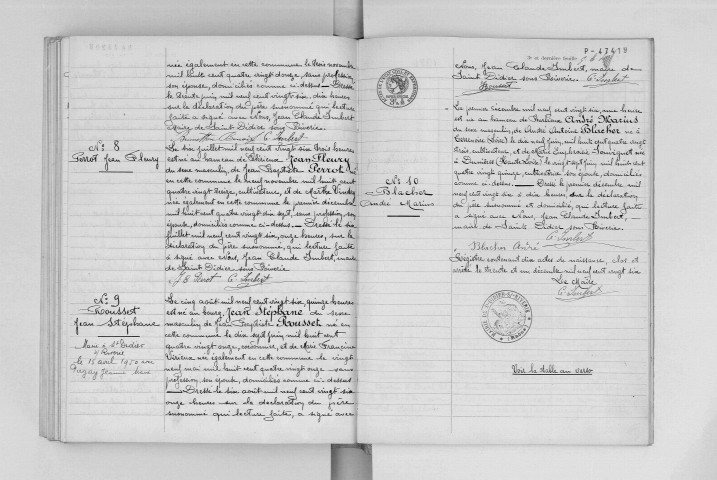 née également en cette commune le trois novembre
mil huit cent quatre vingt douze, sans profession,
son épouse, domiciliés comme ci-dessus. Dressé
le trente juin mil neuf cent vingt six, dix heures
sur la déclaration du père susnommé qui lecture
faite a signé avec Nous, Jean Claude Imbert
Maire de Saint Didier sous Riverie.
C. Imbert
N° 8
Perrot Jean Fleury
Le six juillet mil neuf cent vingt six trois heures
est né au hameau de Jean Fleury
du sexe masculin, de Jean Baptiste Perrot né
en cette commune le neuf novembre mil huit cent
quatre vingt treize, cultivateur, et de Marthe
née également en cette commune le premier décembre
mil huit cent quatre vingt dix sept, sans profession, son
épouse, domiciliés comme ci-dessus. Dressé le six
juillet mil neuf cent vingt six, onze heures, sur la
déclaration du père susnommé, qui lecture faite
a signé avec Nous, Jean Claude Imbert, maire
de Saint Didier sous Riverie
J B Perrot C. Imbert
N° 9
Rousset
Jean Stéphane
Marié à St Didier
s/ Riverie
le 15 avril 1950 avec
Jeanne
Le cinq août mil neuf cent vingt six, quinze heures
est né au bourg, Jean Stéphane du sexe
masculin, de Jean Baptiste Rousset né en
cette commune le dix sept juin mil huit cent
quatre vingt onze, et de Marie Francine
née également en cette commune le vingt
neuf mai mil huit cent quatre vingt onze sans
profession, son épouse, domiciliés comme ci-dessus
Dressé le six août mil neuf cent vingt six
onze heures sur la déclaration du père
susnommé qui lecture faite, a signé avec
P-47419
Nous, Jean Claude Imbert, maire de
Saint Didier sous Riverie. C. Imbert
Rousset
N° 10
Blacher
André Marius
Le premier décembre mil neuf cent vingt six, une heure
est né au hameau de André Marius
du sexe masculin, de André Antoine Blacher né à
(Loire) le dix neuf juin, mil huit cent quatre vingt
trois, cultivateur, et de Marie
née à (Haute Loire) le vingt sept juin, mil huit cent
quatre vingt quinze, cultivatrice son épouse, domiciliés
comme ci-dessus. Dressé le premier décembre mil
neuf cent vingt six à dix heures, sur la déclaration
du père susnommé et domicilié, qui lecture faite
a signé avec Nous, Jean Claude Imbert,
maire de Saint Didier sous Riverie.
C. Imbert
Blacher André
Registre contenant dix actes de naissance, clos et
arrêté le trente et un décembre mil neuf cent vingt six
Le Maire
C. Imbert
Voir la table au verso